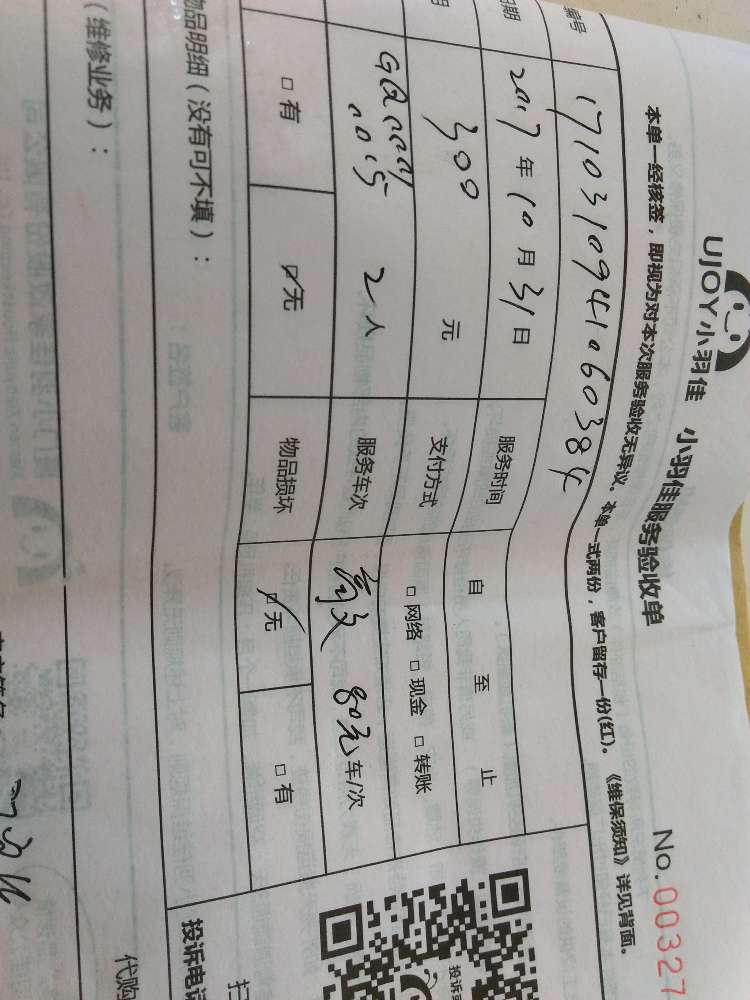 UJOY小羽佳 小羽佳服务验收单
No.00327
本单一经核签，即视为对本次服务验收无异议。本单一式两份，客户留存一份(红)。《维保须知》详见背面。
编号 1710310941060384
日期 2017年10月31日 服务时间 自 至 止
300 元 支付方式 □网络 □现金 □转账
2人 服务车次 80元 车/次
□有 ☑无 物品损坏 ☑无 □有
物品明细（没有可不填）：
投诉电话
（维修业务）：
代购